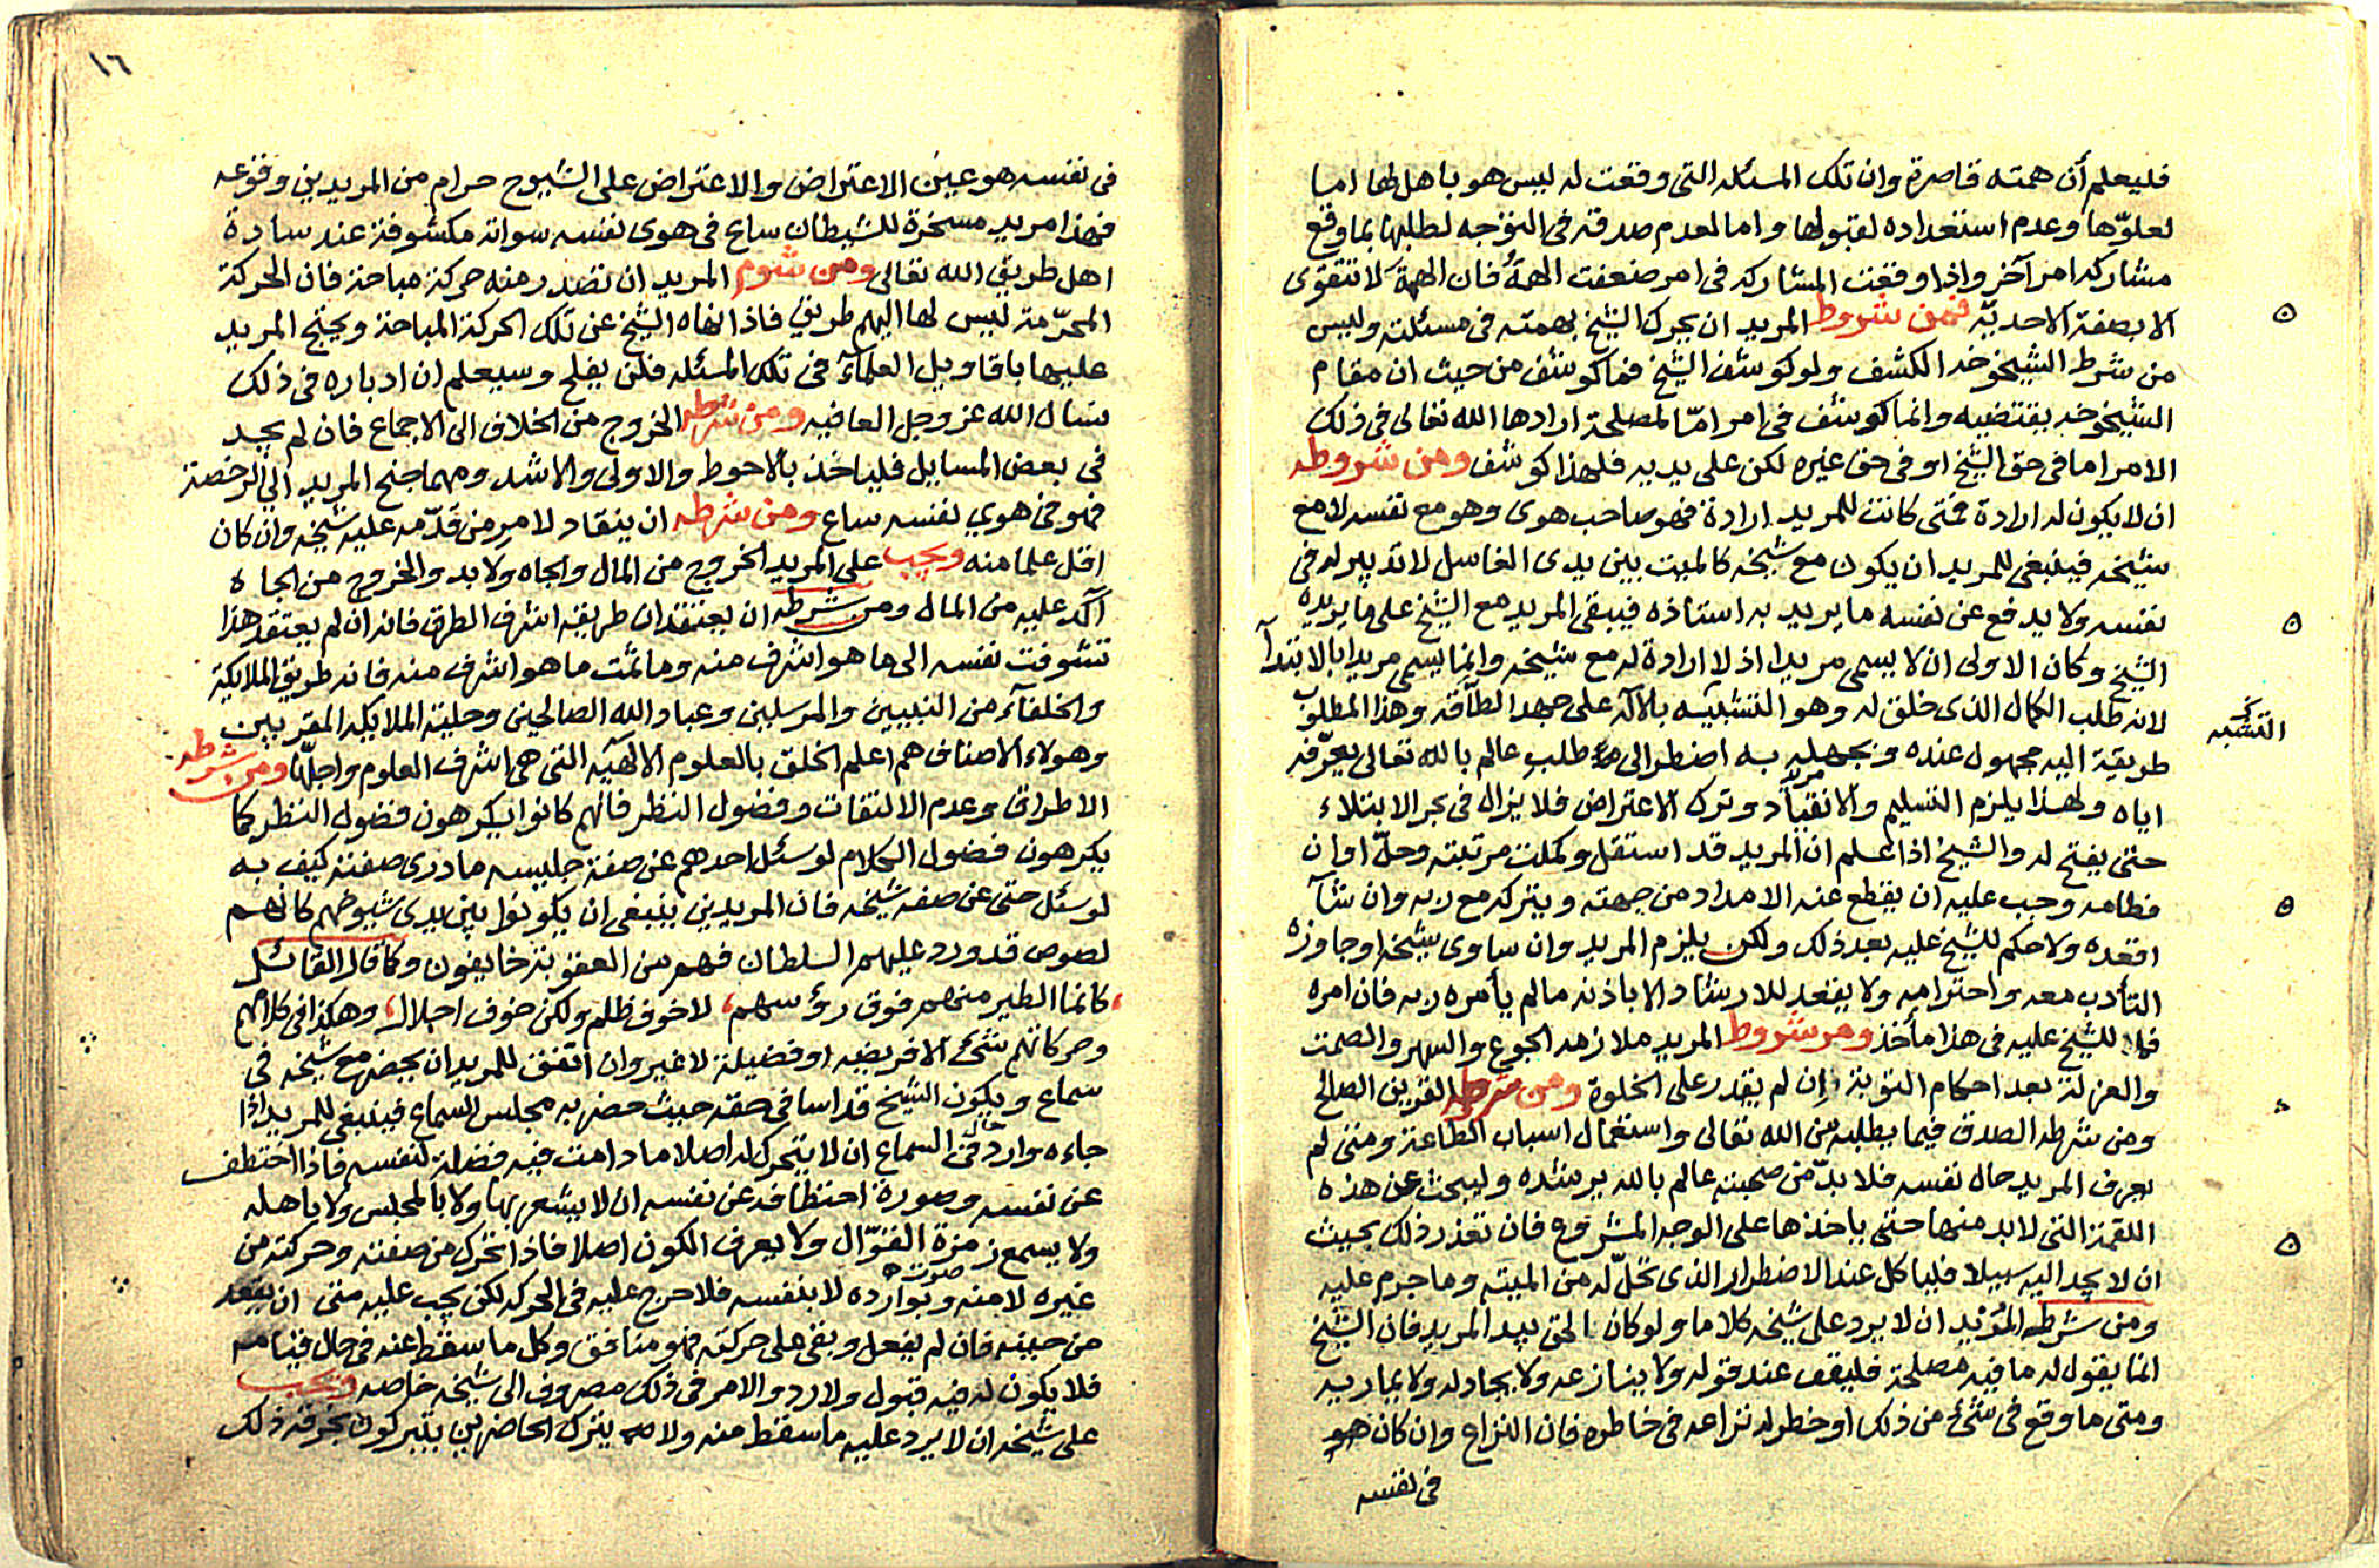 فليعلم أن همته قاصرة وان تلك المسئله التي وقعت له ليس هو باهل لها اما
لعلوّها وعدم استعداده لقبولها واما لعدم صدقه في التوجه لطلبها بما وقع
مشاركه امر آخر واذا وقعت المشاركه في امر ضعفت الهمة فان الهمة لا تتقوى
الا بصفة الاحديّة فمن شروط المريد ان يحرك الشيخ بهمته في مسئلته وليس
من شرط الشيخوخه الكشف ولو كوشف الشيخ فما كوشف من حيث ان مقام
الشيخوخه يقتضيه وانما كوشف في امر امّا لمصلحة ارادها الله تعالى في ذلك
الامر اما في حق الشيخ او في حق غيره لكن على يديه فلهذا كوشف ومن شروطه
ان لا يكون له ارادة فمتى كانت للمريد ارادة فهو صاحب هوى وهو مع نفسه لا مع
شيخه فينبغي للمريد ان يكون مع شيخه كالميت بين يدى الغاسل لا تدبير له في
نفسه ولا يدفع عن نفسه ما يريد به استاذه فيبقى المريد مع الشيخ على ما يريده
الشيخ وكان الاولى ان لا يسمى مريدا اذ لا ارادة له مع شيخه وانما يسمى مريدا بالابتدآ
لانه طلب الكمال الذى خلق له وهو التشبيه بالآله على جهد الطاقه وهذا المطلوب
التشبه
طريقة اليه مجهول عنده وبجهله به اضطر الى طلب عالم بالله تعالى يعرّفه
اياه ولهذا يلزم التسليم والانقياد وترك الاعتراض فلا يزال في بحر الابتلاء
حتى يفتح له والشيخ اذا علم ان المريد قد استقل وكملت مرتبته وحلّ اوان
فطامه وجب عليه ان يقطع عنه الامداد من جهته ويتركه مع ربه وان شآ
اقعده ولا حكم للشيخ عليه بعد ذلك ولكن يلزم المريد وان ساوى شيخه او جاوزه
التأدب معه واحترامه ولا يقعد للارشاد الا باذنه ما لم يأمره ربه فان امره
فما للشيخ عليه في هذا مأخذ ومن شروط المريد ملازمه الجوع والسهر والصمت
والعزلة بعد احكام التوبة وان لم يقدر على الخلوة ومن شروطه القرين الصالح
ومن شرطه الصدق فيما يطلبه من الله تعالى واستعمال اسباب الطاعة ومتى لم
يعرف المريد حال نفسه فلا بدّ من صحبته عالم بالله يرشده وليبحث عن هذه
اللقمة التي لا بد منها حتى ياخذها على الوجه المشروع فان تعذر ذلك بحيث
ان لا يجد اليه سبيلا فلياكل عند الاضطرار الذى تحلّ له من الميتة وما حرم عليه
ومن شرطه المريد ان لا يرد على شيخه كلاما ولو كان الحق بيد المريد فان الشيخ
انما يقول له ما فيه مصلحة فليقف عند قوله ولا ينازعه ولا يجادله ولا يماريه
ومتى ما وقع في شئ من ذلك او خطر له نزاعه في خاطره فان النزاع وان كان هو
في نفسه
١٦
في نفسه هو عين الاعتراض والاعتراض على الشيوخ حرام من المريدين وقوعه
فهذا مريد مسخرة للشيطان ساع في هوى نفسه سواته مكشوفة عند سادة
اهل طريق الله تعالى ومن شوم المريد ان تصدر منه حركة مباحة فان الحركة
المحرّمة ليس لها اليهم طريق فاذا نهاه الشيخ عن تلك الحركة المباحة ويحتج المريد
عليها باقاويل العلمآء في تلك المسئله فلن يفلح وسيعلم ان ادباره في ذلك
نسال الله عز وجل العافيه ومن شرطه الخروج من الخلاف الى الاجماع فان لم يجد
في بعض المسايل فلياخذ بالاحوط والاولى والاشد ومهما جنح المريد الي الرخصة
فهو في هوي نفسه ساع ومن شرطه ان ينقاد لامر من قدّمه عليه شيخه وان كان
اقل علما منه ويجب على المريد الخروج من المال والجاه ولا بد والخروج من الجاه
آكد عليه من المال ومن شرطه ان يعتقد ان طريقه اشرف الطرق فانه ان لم يعتقد هذا
تشوفت نفسه الى ما هو اشرف منه وما ثمت ما هو اشرف منه فانه طريق الملايكة
والخلفآء من النبيين والمرسلين وعباد الله الصالحين وحلية الملايكه المقربين
وهولاء الاصناف هم اعلم الخلق بالعلوم الالهيه التي هي اشرف العلوم واجلّها ومن شرطه
الاطراق وعدم الالتقات وفضول النظر فانهم كانوا يكرهون فضول النظر كما
يكرهون فضول الكلام لو سئل احدهم عن صفة جليسه ما درى صفته كيف به
لو سئل حتى عن صفه شيخه فان المريدين ينبغي ان يكونوا بين يدى شيوخهم كانهم
لصوص قد ورد عليهم السلطان فهم من العقوبة خايفون وكما قال القائل
كانما الطير منهم فوق رؤسهم، لا خوف ظلم ولكن خوف اجلال، وهكذا في كلامهم
وحركاتهم شئ الا فريضه او فضيلة لا غير وان اتفق للمريد ان يحضر مع شيخه في
سماع ويكون الشيخ قد اسا في حقه حيث حضر به مجلس السماع فينبغي للمريد اذا
جاءه وارد في حال السماع ان لا يتحرك له اصلا ما دامت فيه فضلة لنفسه فاذا اختطف
عن نفسه وصورة اختطافه عن نفسه ان لا يشعر بها ولا بالمجلس ولا باهله
ولا يسمع زمزة القوّال ولا يعرف الكون اصلا فاذا تحرك من صفته وحركته من
غيره لا منه وبوارده صوت لا بنفسه فلا حرج عليه في الحركه لكن يجب عليه متى ان يقعد
من حينه فان لم يفعل وبقى على حركته فهو منافق وكل ما سقط عنه في حال قيامه
فلا يكون له فيه قبول ولا رد والامر في ذلك مصروف الى شيخه خاصه ويجب
على شيخه ان لا يرد عليه ما سقط منه ولا يترك الحاضرين يتبركون بخرقه ذلك